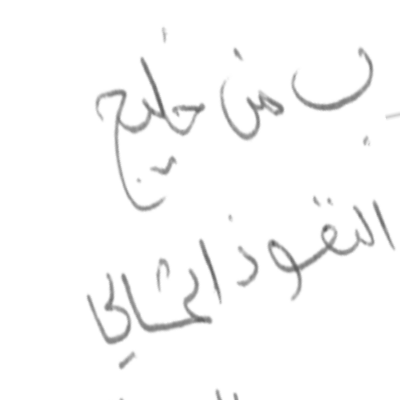 ب من خليج
النفوذ الحالي